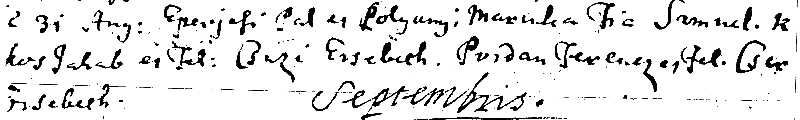 31 Aug: Eperjesi Pal es Polgung; Maruska Fia Samuel. K
kos Jakab es Fel: Csuzi Ersebeth. Pordan Ferencz es Fel. Cser
Ersebeth.
Septembris.